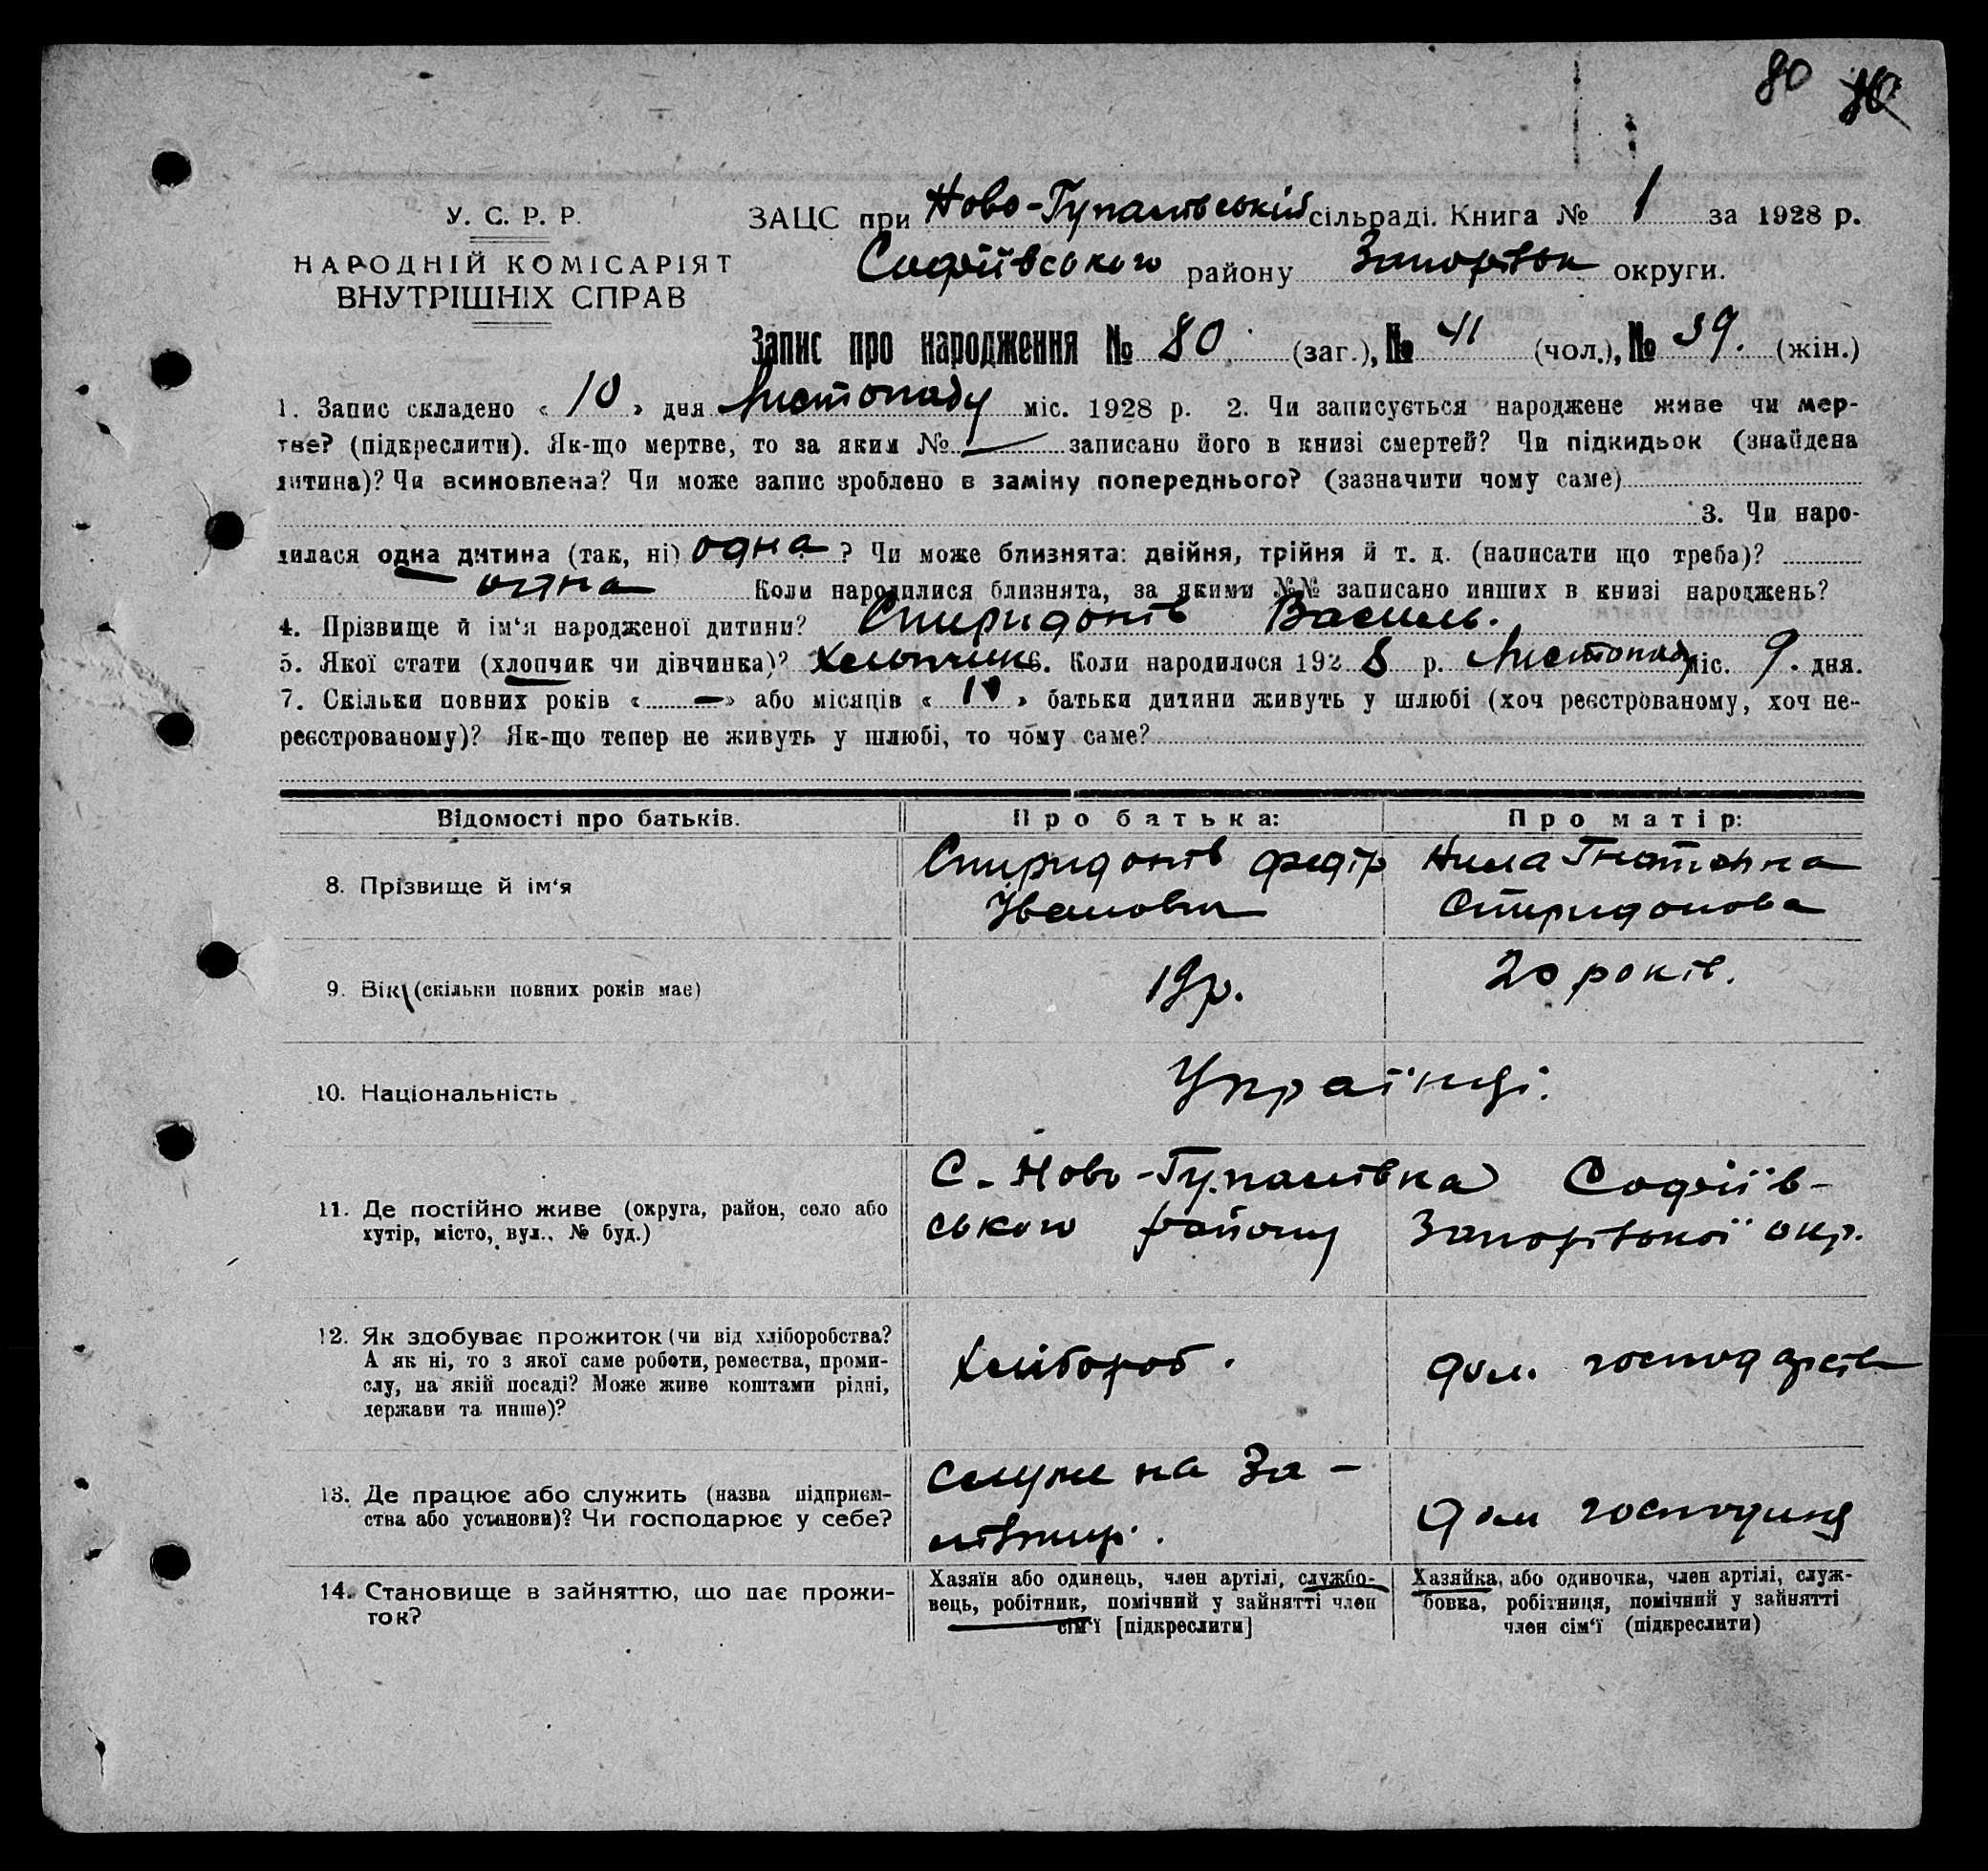 80
У. С. Р. Р.
НАРОДНІЙ КОМІСАРІЯТ
ВНУТРІШНІХ СПРАВ
ЗАЦС при Ново-Гупалівській сільраді. Книга № 1 за 1928 р.
Софіївського району Запорізьк округи.
Запис про народження № 80. (заг.), № 41 (чол.), № 39. (жін.)
1. Запис складено « 10 » дня Листопаду міс. 1928 р. 2. Чи записується народжене живе чи мер-
тве? (підкреслити). Як-що мертве, то за яким № — записано його в книзі смертей? Чи підкидьок (знайдена
дитина)? Чи всиновлена? Чи може запис зроблено в заміну попереднього? (зазначити чому саме)
3. Чи наро-
дилася одна дитина (так, ні) одна? Чи може близнята: двійня, трійня й т. д. (написати що треба)?
одна Коли народилися близнята, за якими №№ записано инших в книзі народжень?
4. Прізвище й ім'я народженої дитини? Спиридонів Василь.
5. Якої стати (хлопчик чи дівчинка)? Хлопчик 6. Коли народилося 1928 р. Листопаду міс. 9. дня.
7. Скільки повних років « — » або місяців « 10 » батьки дитини живуть у шлюбі (хоч реєстрованому, хоч не-
реєстрованому)? Як-що тепер не живуть у шлюбі, то чому саме?
Відомості про батьків. Про батька: Про матір:
8. Прізвище й ім'я
Спиридонів Федір
Іванович
Нила Гнатовна
Спиридонова
9. Вік (скільки повних років має) 19 р. 20 років.
10. Національність Українці.
11. Де постійно живе (округа, район, село або
хутір, місто, вул., № буд.)
С. Ново-Гупалівка Софіїв-
ського району Запорізької окр.
12. Як здобуває прожиток (чи від хліборобства?
А як ні, то з якої саме роботи, ремества, проми-
слу, на якій посаді? Може живе коштами рідні,
держави та инше)?
Хлібороб. дом. господарств
13. Де працює або служить (назва підприєм-
ства або установи)? Чи господарює у себе?
служе на За-
лізниці.
дом господиня
14. Становище в зайняттю, що дає прожи-
ток?
Хазяїн або одинець, член артілі, службо-
вець, робітник, помічний у зайнятті член
сім'ї [підкреслити]
Хазяйка, або одиночка, член артілі, служ-
бовка, робітниця, помічний у зайнятті
член сім'ї (підкреслити)